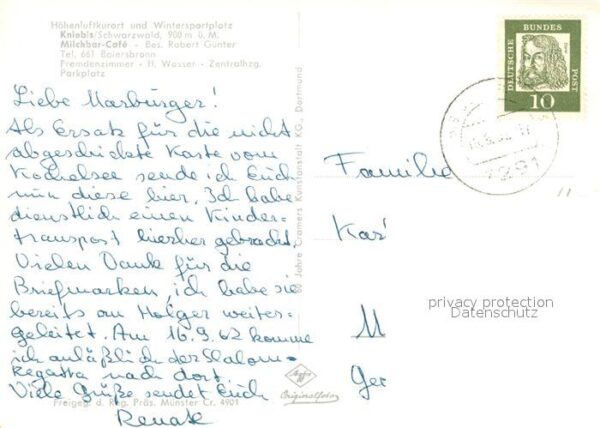 Höhenluftkurort und Wintersportplatz
Kniebis/Schwarzwald, 900 m ü. M.
Milchbar-Café - Bes. Robert Günter
Tel. 661 Baiersbronn
Fremdenzimmer - fl. Wasser - Zentralhzg.
Parkplatz
Liebe Marburger!
Als Ersatz für die nicht
abgeschickte Karte vom
Kochelsee sende ich Euch
nun diese hier. Ich habe
dienstlich einen Kinder-
transport hierher gebracht.
Vielen Dank für die
Briefmarken, ich habe sie
bereits an Holger weiter-
geleitet. Am 16.9.62 komme
ich anläßlich der Slalom-
Regatta nach dort.
Viele Grüße sendet Euch
Renate
Freigeg. d. Reg. Präs. Münster Cr. 4901
80 Jahre Cramers Kunstanstalt KG., Dortmund
Agfa
Originalfoto
DEUTSCHE BUNDESPOST
Dürer
10
7291
Familie
Kas
M
Ger
privacy protection
Datenschutz